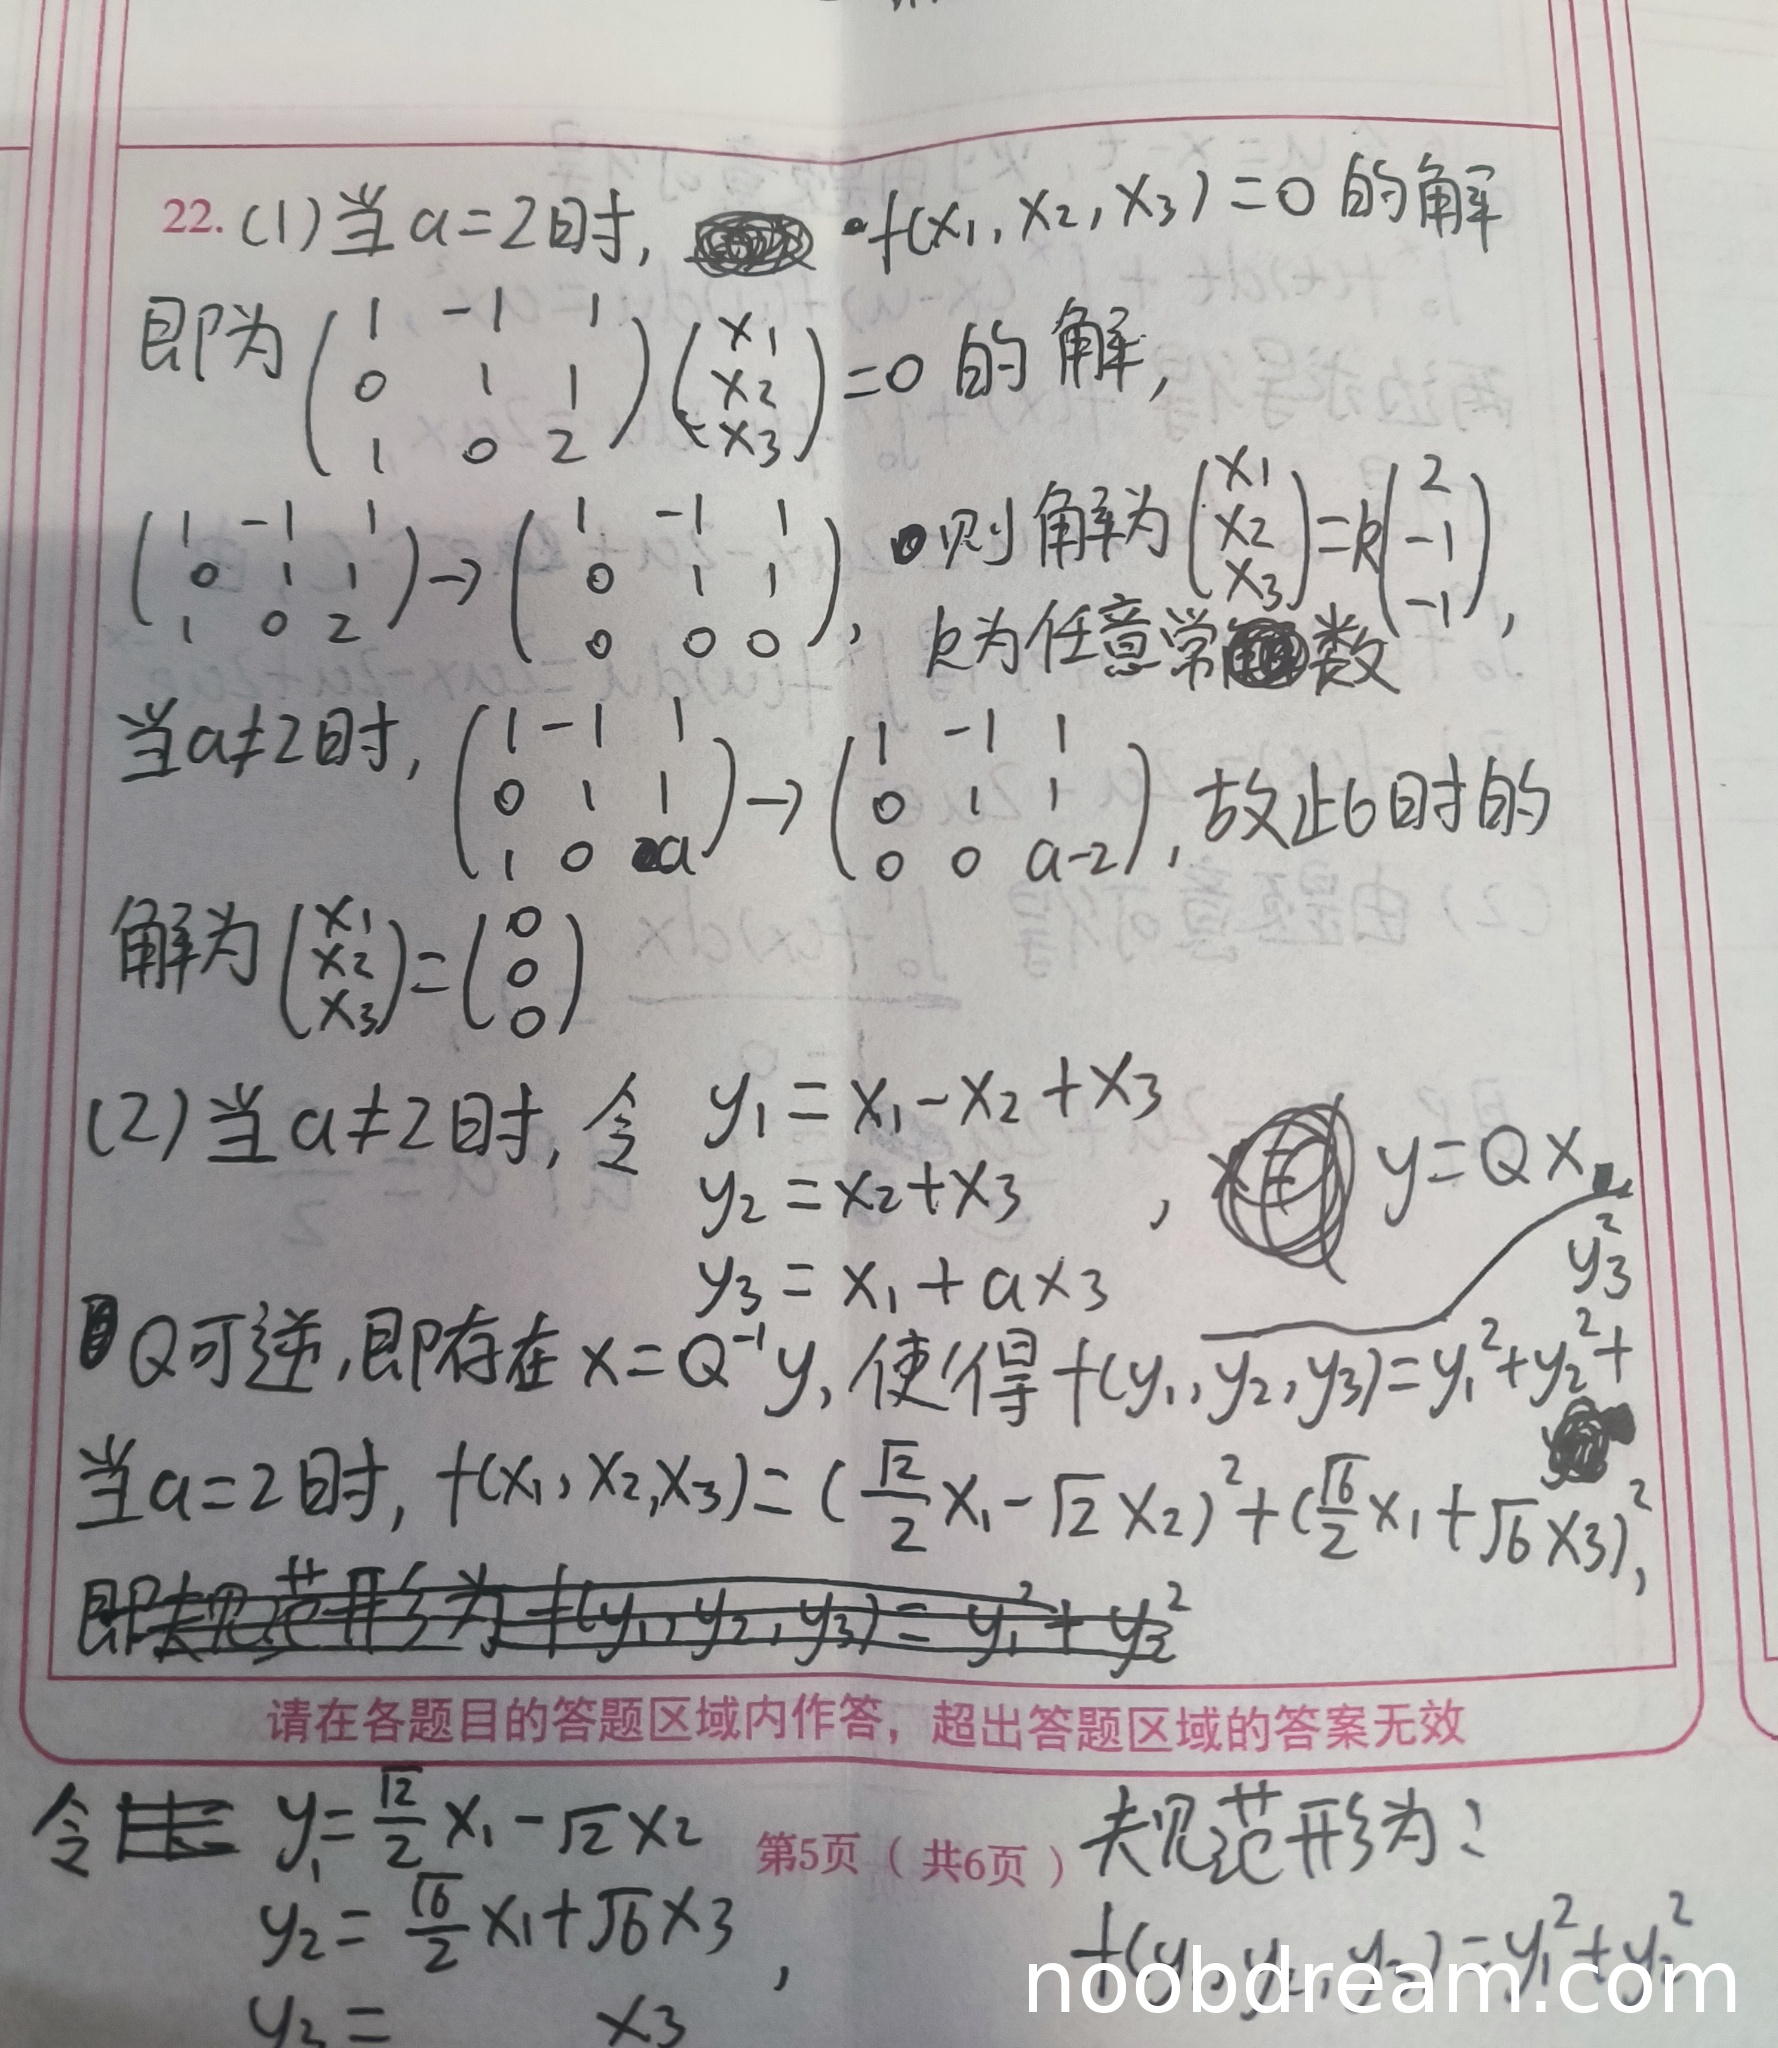 22. (1)当a=2时, f(x₁, x₂, x₃)=0的解
即为 (1 -1 1; 0 1 1; 1 0 2) (x₁; x₂; x₃) =0 的解,
(1 -1 1; 0 1 1; 1 0 2) → (1 -1 1; 0 1 1; 0 0 0), 则解为 (x₁; x₂; x₃) = k(2; -1; -1),
k为任意常数
当a≠2时, (1 -1 1; 0 1 1; 1 0 a) → (1 -1 1; 0 1 1; 0 0 a-2), 故此时的
解为 (x₁; x₂; x₃) = (0; 0; 0)
(2)当a≠2时, 令 y₁=x₁-x₂+x₃
y₂=x₂+x₃ , y=Qx
y₃=x₁+ax₃
Q可逆,即存在x=Q⁻¹y, 使得f(y₁,y₂,y₃)=y₁²+y₂²+y₃²
当a=2时, f(x₁,x₂,x₃)=(√2/2 x₁-√2x₂)²+(√6/2 x₁+√6x₃)²,
即规范形为f(y₁,y₂,y₃)=y₁²+y₂²
请在各题目的答题区域内作答，超出答题区域的答案无效
令 y₁=√2/2 x₁-√2x₂
y₂=√6/2 x₁+√6x₃ ,
y₃= x₃
第5页（共6页）
规范形为:
f(y₁,y₂,y₃)=y₁²+y₂²
noobdream.com